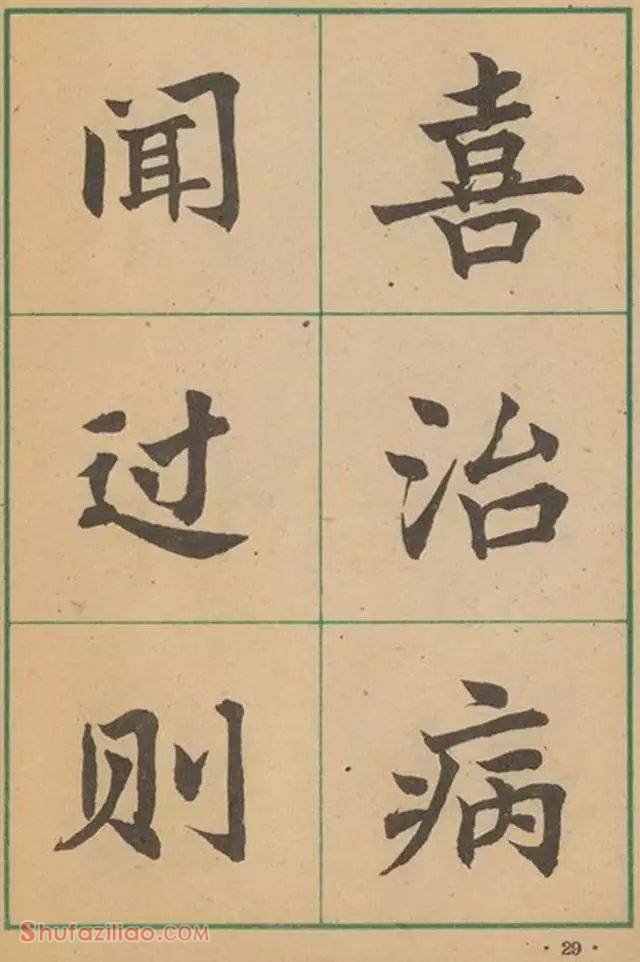 闻过则
喜治病
·29·
Shufaziliao.com